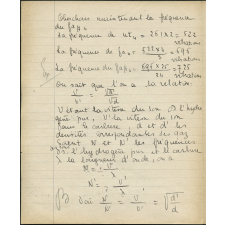 Cherchons maintenant la fréquence
du fa♯₄
La fréquence de ut₄ = 261×2 = 522
vibration
La fréquence de fa₄ = 522×4/3 = 696
vibration
La fréquence du fa♯₄ = 696×25/24 = 725
vibration
On sait que l'on a la relation
V/V' = √d'/√d
V étant la vitesse du son
gène pur, V' la vitesse du son
dans le carbone, d et d' les
densités correspondantes des gaz
Soient N et N' les fréquences
de l'hydrogène pur et le carbone
λ la longueur d'onde, on a
N = V/λ
N' = V'/λ
D'où N/N' = V/V' = √d'/d